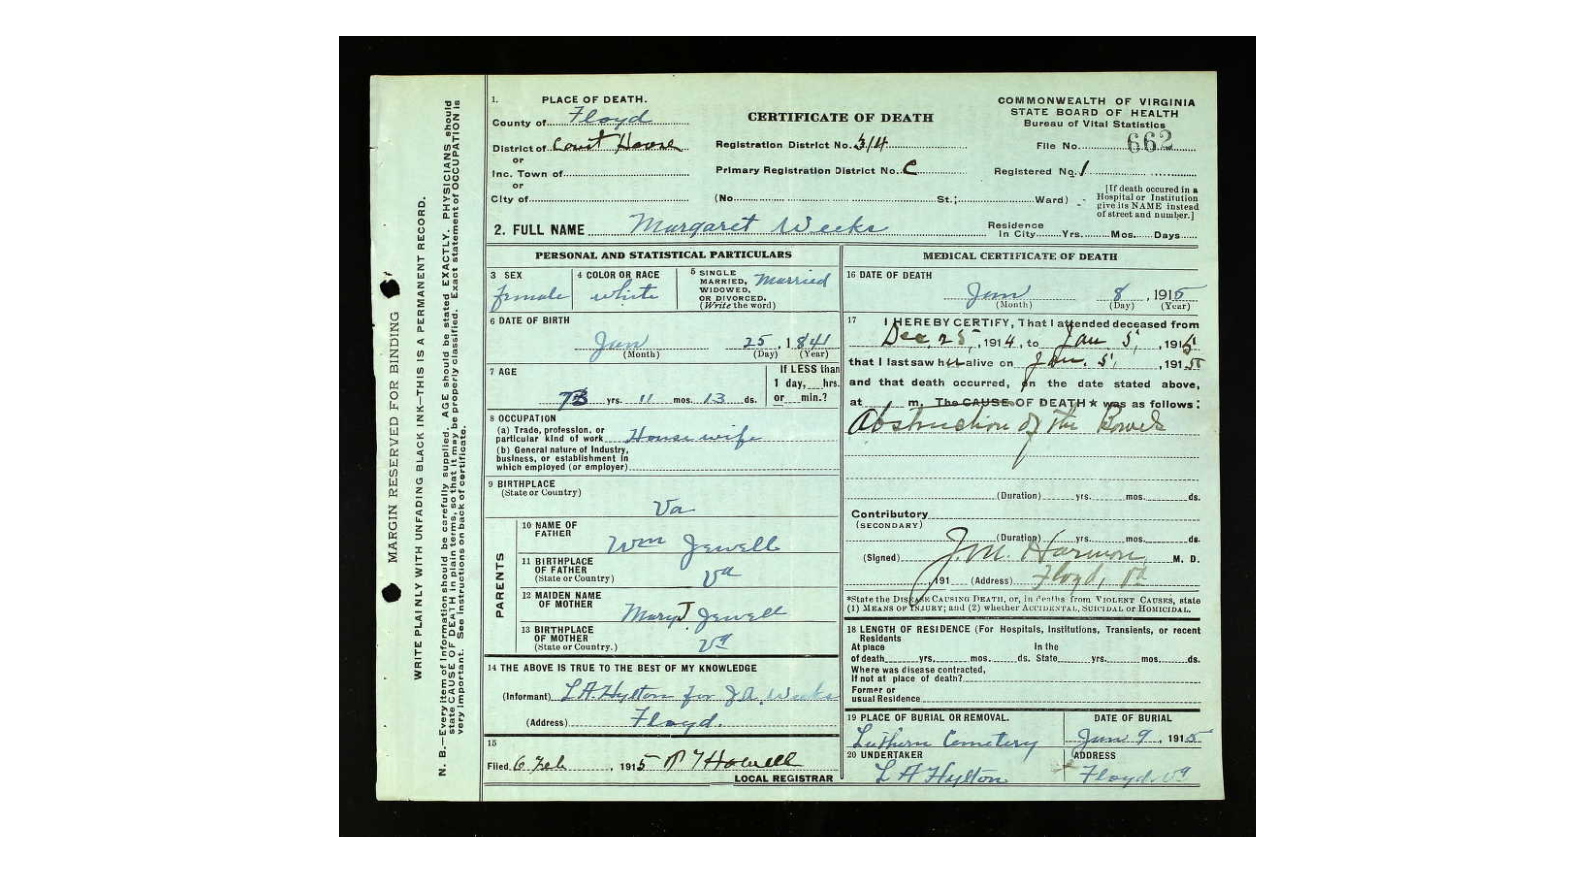 1. PLACE OF DEATH.
County of Floyd
District of Court House
or
Inc. Town of
or
City of
CERTIFICATE OF DEATH
Registration District No. 314
Primary Registration District No. C
(No. St.; Ward)
COMMONWEALTH OF VIRGINIA
STATE BOARD OF HEALTH
Bureau of Vital Statistics
File No. 662
Registered No. 1
[If death occured in a
Hospital or Institution
give its NAME instead
of street and number.]
2. FULL NAME Margaret Weeks
Residence
In City Yrs. Mos. Days
PERSONAL AND STATISTICAL PARTICULARS
3 SEX
female
4 COLOR OR RACE
white
5 SINGLE
MARRIED,
WIDOWED,
OR DIVORCED.
(Write the word)
Married
6 DATE OF BIRTH
Jan 25, 1841
(Month) (Day) (Year)
7 AGE
73 yrs. 11 mos. 13 ds.
If LESS than
1 day, hrs.
or min.?
8 OCCUPATION
(a) Trade, profession, or
particular kind of work House wife
(b) General nature of Industry,
business, or establishment in
which employed (or employer)
9 BIRTHPLACE
(State or Country)
Va
PARENTS
10 NAME OF
FATHER
Wm Jewell
11 BIRTHPLACE
OF FATHER
(State or Country)
Va
12 MAIDEN NAME
OF MOTHER
Mary J Jewell
13 BIRTHPLACE
OF MOTHER
(State or Country.)
Va
14 THE ABOVE IS TRUE TO THE BEST OF MY KNOWLEDGE
(Informant) L A Hylton for J A Weeks
(Address) Floyd.
15
Filed. 6 Feb, 1915 Howell
LOCAL REGISTRAR
MEDICAL CERTIFICATE OF DEATH
16 DATE OF DEATH
Jan 8, 1915
(Month) (Day) (Year)
17 I HEREBY CERTIFY, That I attended deceased from
Dec. 25, 1914, to Jan. 5, 1915
that I last saw her alive on Jan. 5, 1915
and that death occurred, on the date stated above,
at m. The CAUSE OF DEATH★ was as follows:
Obstruction of the Bowels
(Duration) yrs. mos. ds.
Contributory
(SECONDARY)
(Duration) yrs. mos. ds.
(Signed) J. M. Harmon M. D.
, 191 (Address) Floyd, Va
*State the DISEASE CAUSING DEATH, or, in deaths from VIOLENT CAUSES, state
(1) MEANS OF INJURY; and (2) whether ACCIDENTAL, SUICIDAL or HOMICIDAL.
18 LENGTH OF RESIDENCE (For Hospitals, Institutions, Transients, or recent
Residents
At place In the
of death yrs. mos. ds. State yrs. mos. ds.
Where was disease contracted,
If not at place of death?
Former or
usual Residence
19 PLACE OF BURIAL OR REMOVAL.
Luthern Cemetery
DATE OF BURIAL
Jan 9, 1915
20 UNDERTAKER
L A Hylton
ADDRESS
Floyd Va
MARGIN RESERVED FOR BINDING
WRITE PLAINLY WITH UNFADING BLACK INK—THIS IS A PERMANENT RECORD.
N. B.—Every item of information should be carefully supplied. AGE should be stated EXACTLY. PHYSICIANS should
state CAUSE OF DEATH in plain terms, so that it may be properly classified. Exact statement of OCCUPATION is
very important. See instructions on back of certificate.